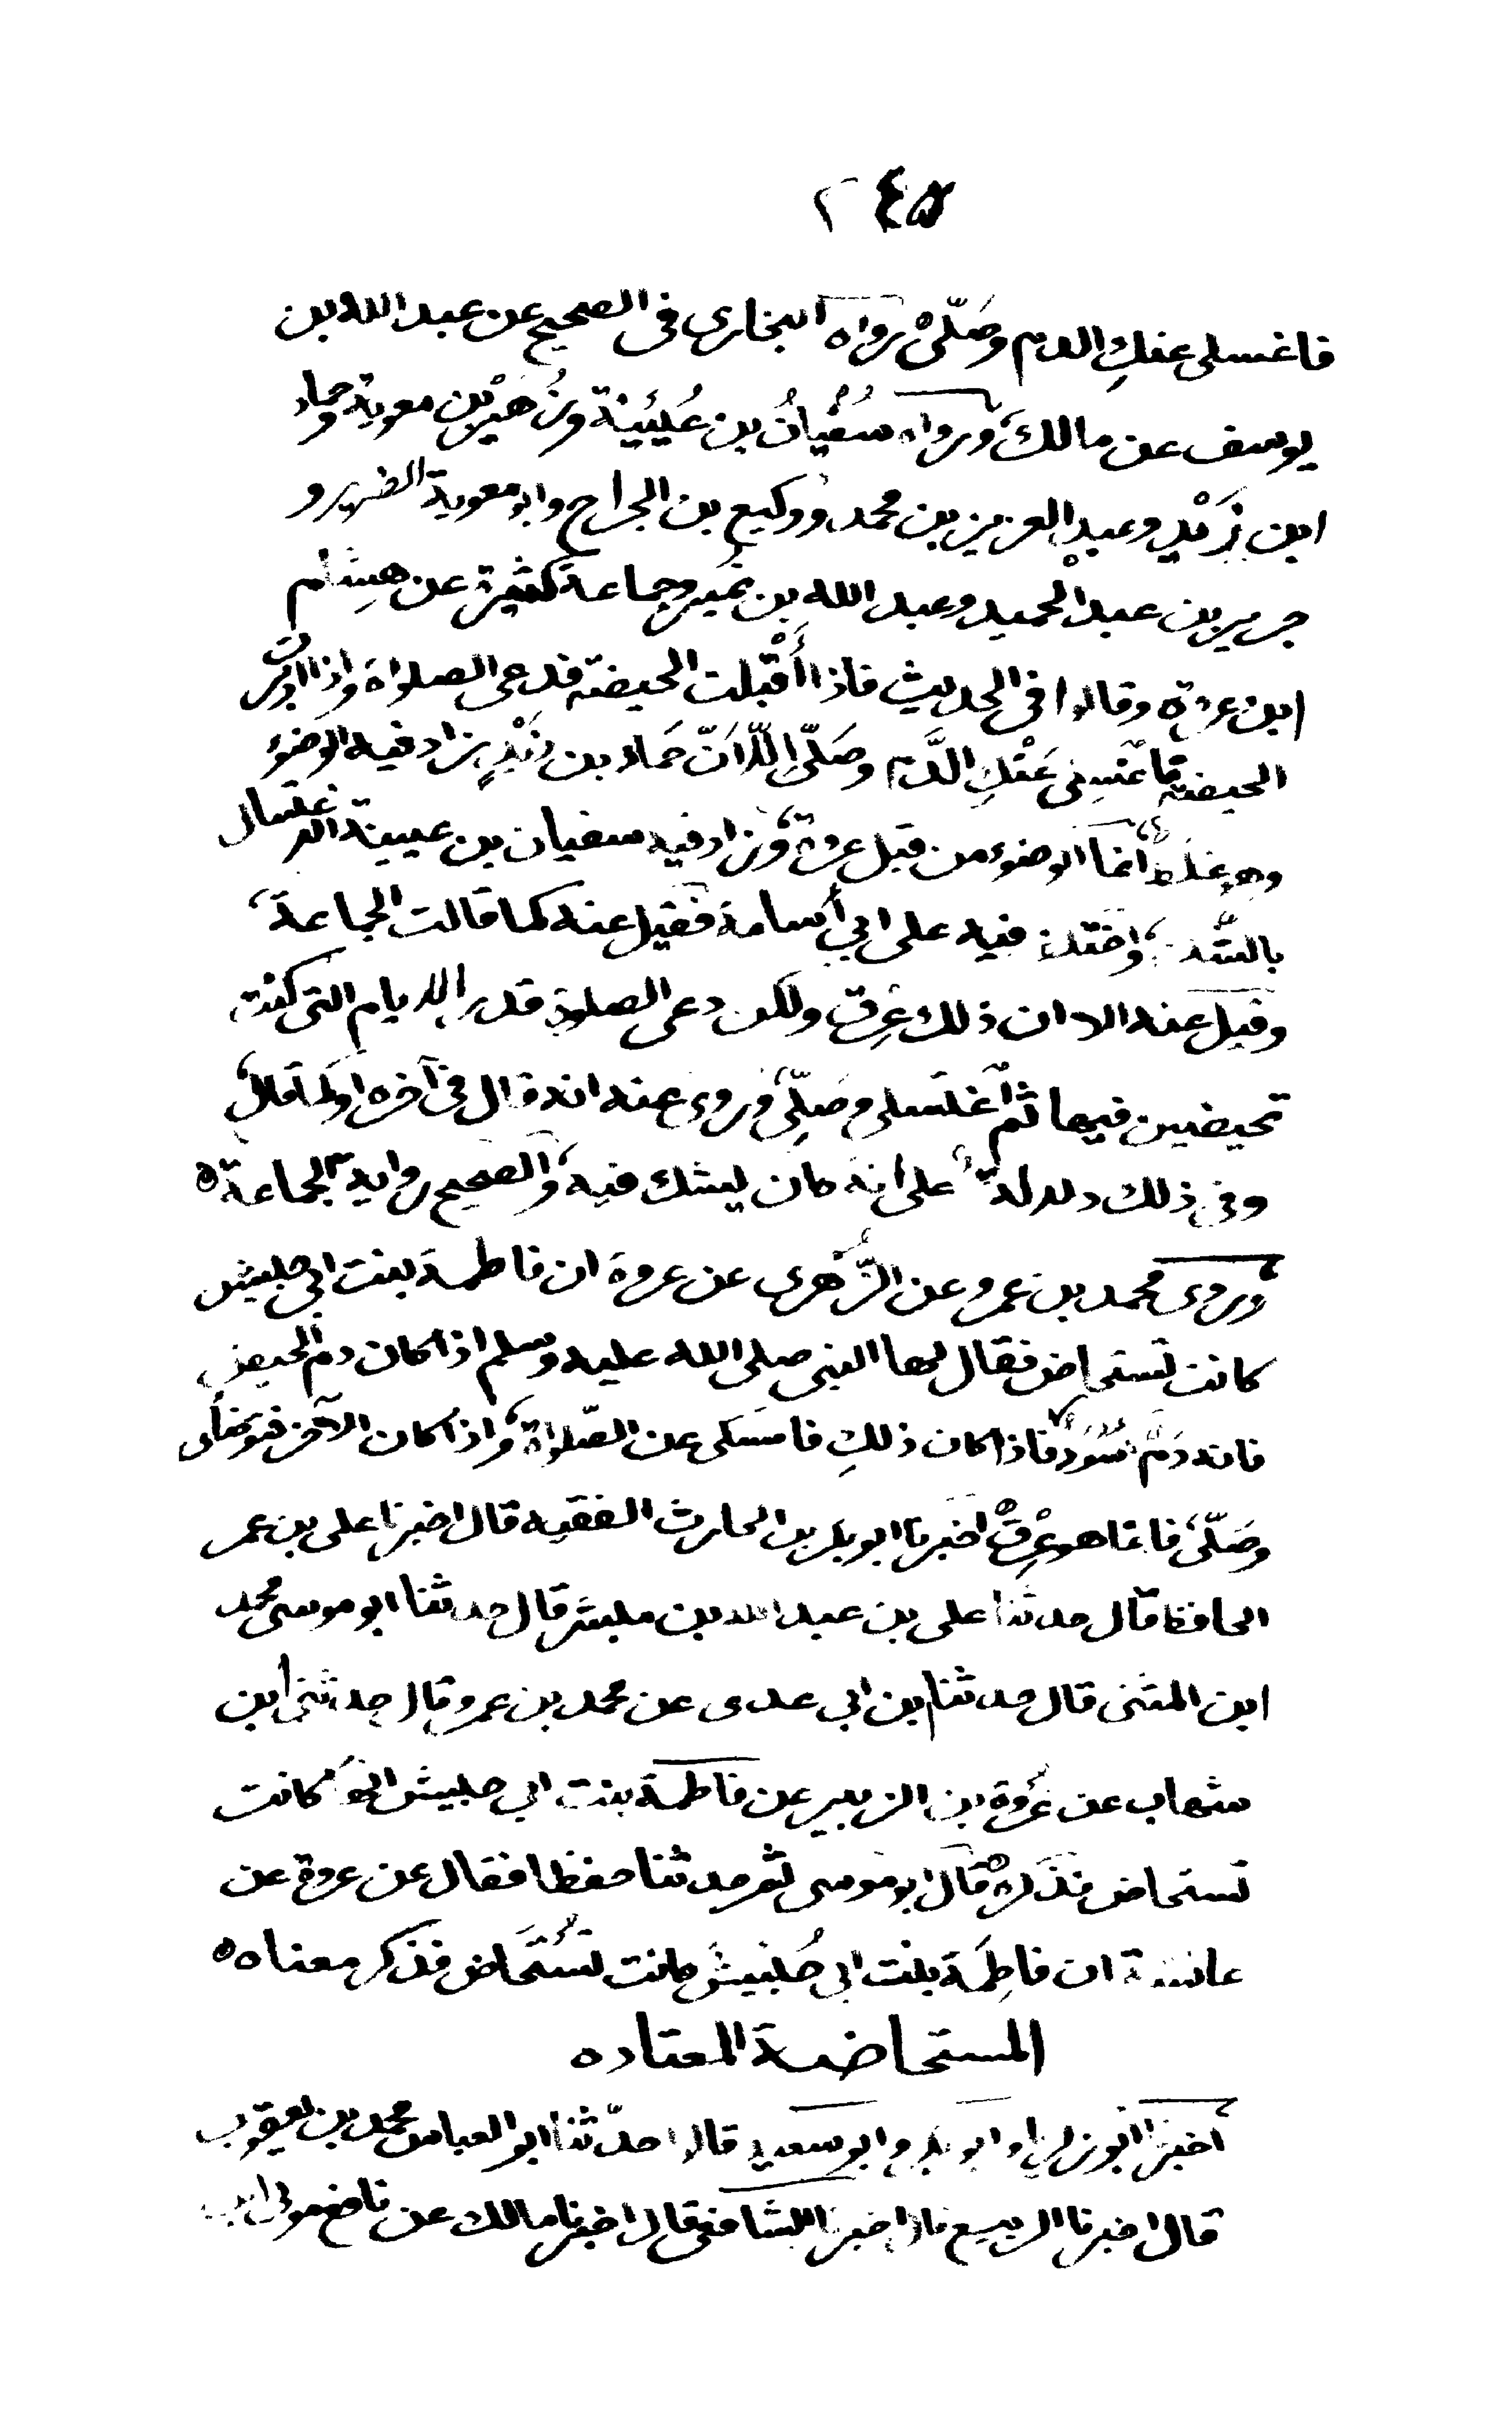 ٢٤٥
فاغسلى عنكِ الدم وصَلّى رواه البخارى فى الصحيح عن عبد الله بن
يوسف عن مالك ورواه سُفْيانُ بن عُيَيْنة وزُهَيْر بن معوية وحماد
ابن زَيْدٍ وعبد العزيز بن محمد ووكيع بن الجراح وابو معوية الضرير و
جرير بن عبد الحميد وعبد الله بن نُمير وجماعة كثيرة عن هِشام
ابن عروة وقالوا فى الحديث فاذا أَقْبلت الحيضة فدعى الصلواة واذا ادبرت
الحيضة فاغسلى عَنْكِ الدَّم وصَلّى اِلّا اَنّ حَماد بن زَيْدٍ زاد فيه الوضوء
وهو غلط انما الوضوء من قبل عروة وزاد فيه سفيان بن عيينة الاغتسال
بالشك واختلف فيه على ابى اُسامة فقيل عنه كما قالت الجماعة
وقيل عنه الا ان ذلك عِرق ولكن دعى الصلوة قدر الايام التى كنت
تحيضين فيها ثم اغتسلى وصَلِّى وروى عنه انه قال فى آخره او كما قال
وفى ذلك دلالة على انه كان يشك فيه والصحيح رواية الجماعة ه
وروى محمد بن عمرو عن الزُّهرى عن عروة ان فاطمة بنت ابى حبيش
كانت تستحاض فقال لها النبى صلى الله عليه وسلم اذا كان دم الحيض
فانه دَم اَسْوَد فاذا كان ذلكِ فامسكى عن الصّلواة واذا كان الآخر فتوضأى
وصَلّى فانما هو عِرْقٌ اخبرنا ابو بكر بن الحارث الفقيه قال اخبرنا على بن عمر
الحافظ قال حدثنا على بن عبد الله بن مبشر قال حدثنا ابو موسى محمد
ابن المثنى قال حدثنا بن ابى عدى عن محمد بن عمرو قال حدثنى ابن
شهاب عن عُروة بن الزبير عن فاطمة بنت ابى حبيش انها كانت
تستحاض فذكره قال ابو موسى ثم حدثنا حفظا فقال عن عروة عن
عائشة ان فاطِمَة بنت ابى حُبَيْشٍ كانت تُسْتَحَاض فذكر معناه ه
المستحاضة المعتاده
اخبرنا ابو زكريا وابو بكر وابو سعيد قالوا حدّثنا ابو العباس محمد بن يعقوب
قال اخبرنا الربيع قال اخبرنا الشافعى قال اخبرنا مالك عن نافع مولى ابن